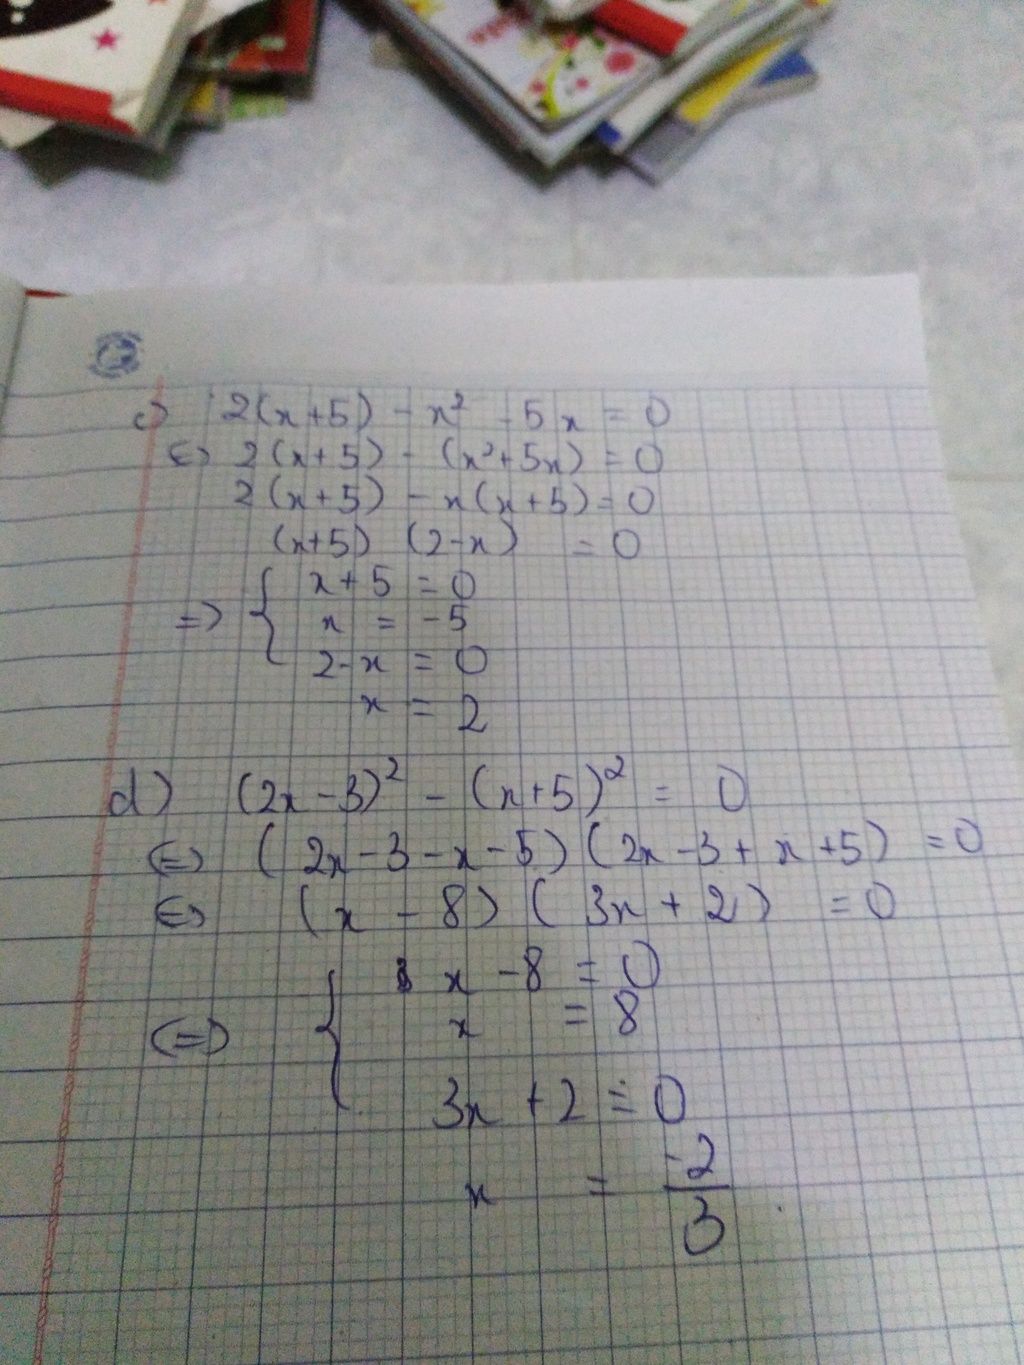 c) 2(x+5) - x² - 5x = 0
<=> 2(x+5) - (x²+5x) = 0
2(x+5) - x(x+5) = 0
(x+5) (2-x) = 0
=> { x+5 = 0
x = -5
2-x = 0
x = 2
d) (2x-3)² - (x+5)² = 0
<=> (2x-3-x-5)(2x-3+x+5) = 0
<=> (x-8)(3x+2) = 0
<=> { x-8 = 0
x = 8
3x+2 = 0
x = -2/3